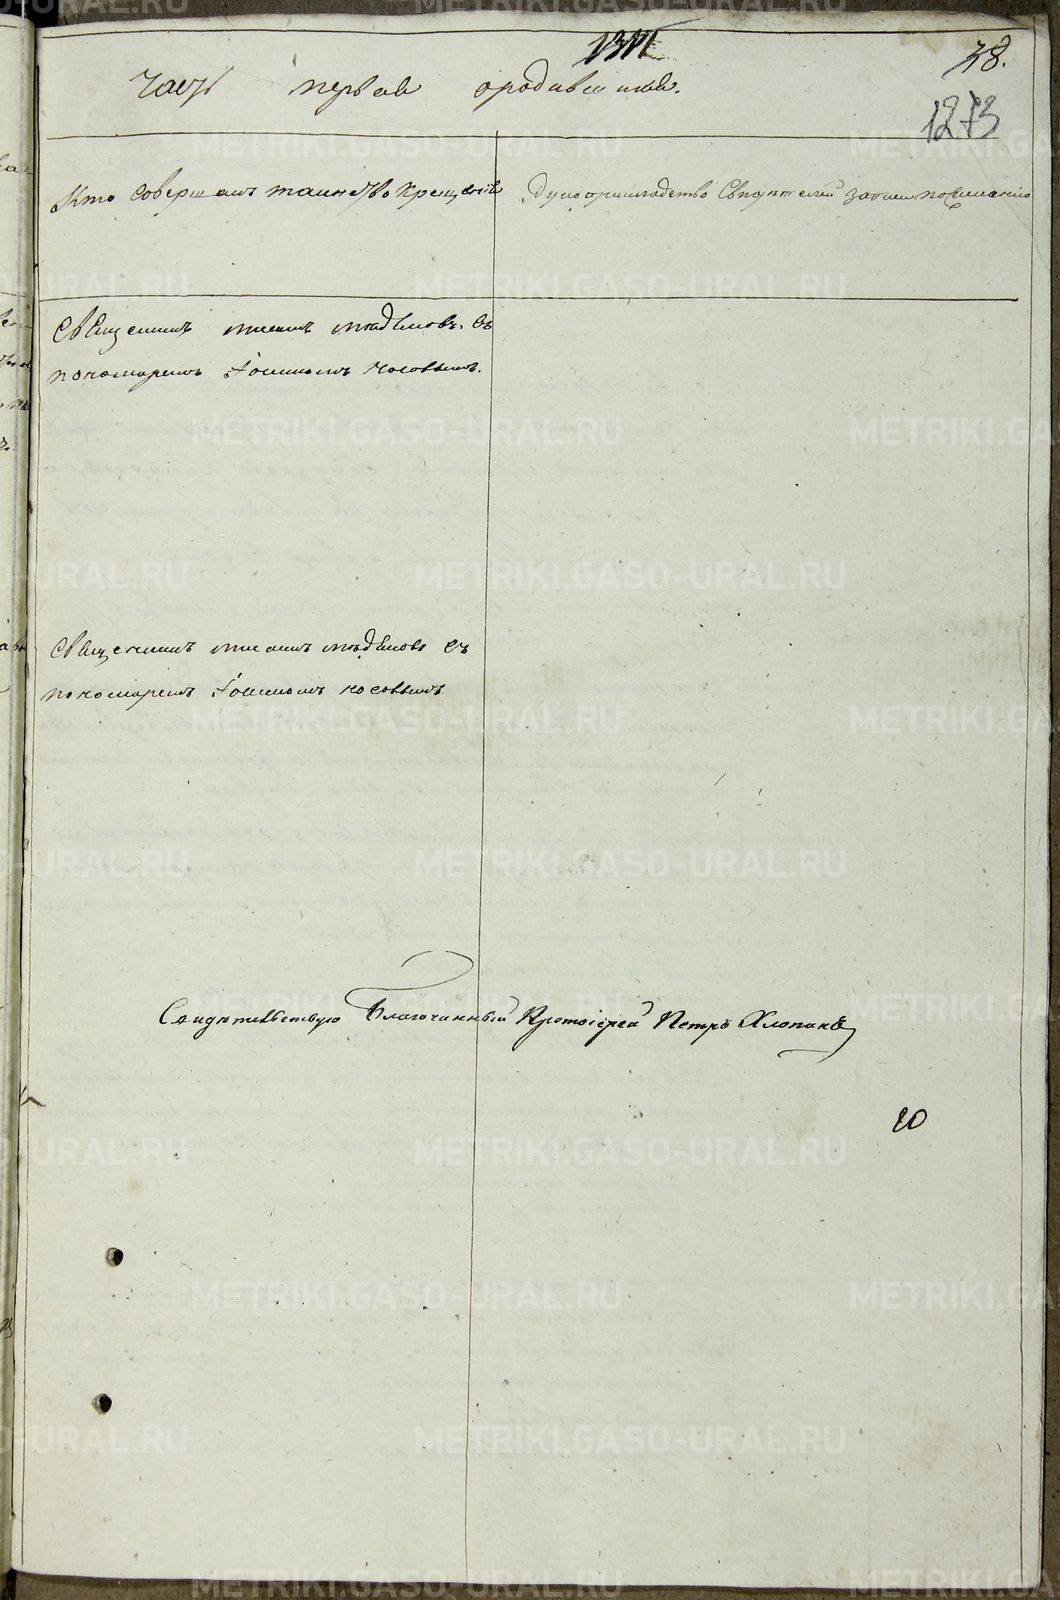 38.
1273
Часть первая ородившихся.
Кто совершалъ таинство крещенія
Рукоприкладство Свидѣтелей записи по желанію
Священникъ Медвѣдовъ съ
пономаремъ Іоанномъ Носовымъ.
Священникъ съ
пономаремъ Іоанномъ Носовымъ
Свидѣтельствую Благочинный Протоіерей Петръ Хлопинъ
10
METRIKI.GASO-URAL.RU